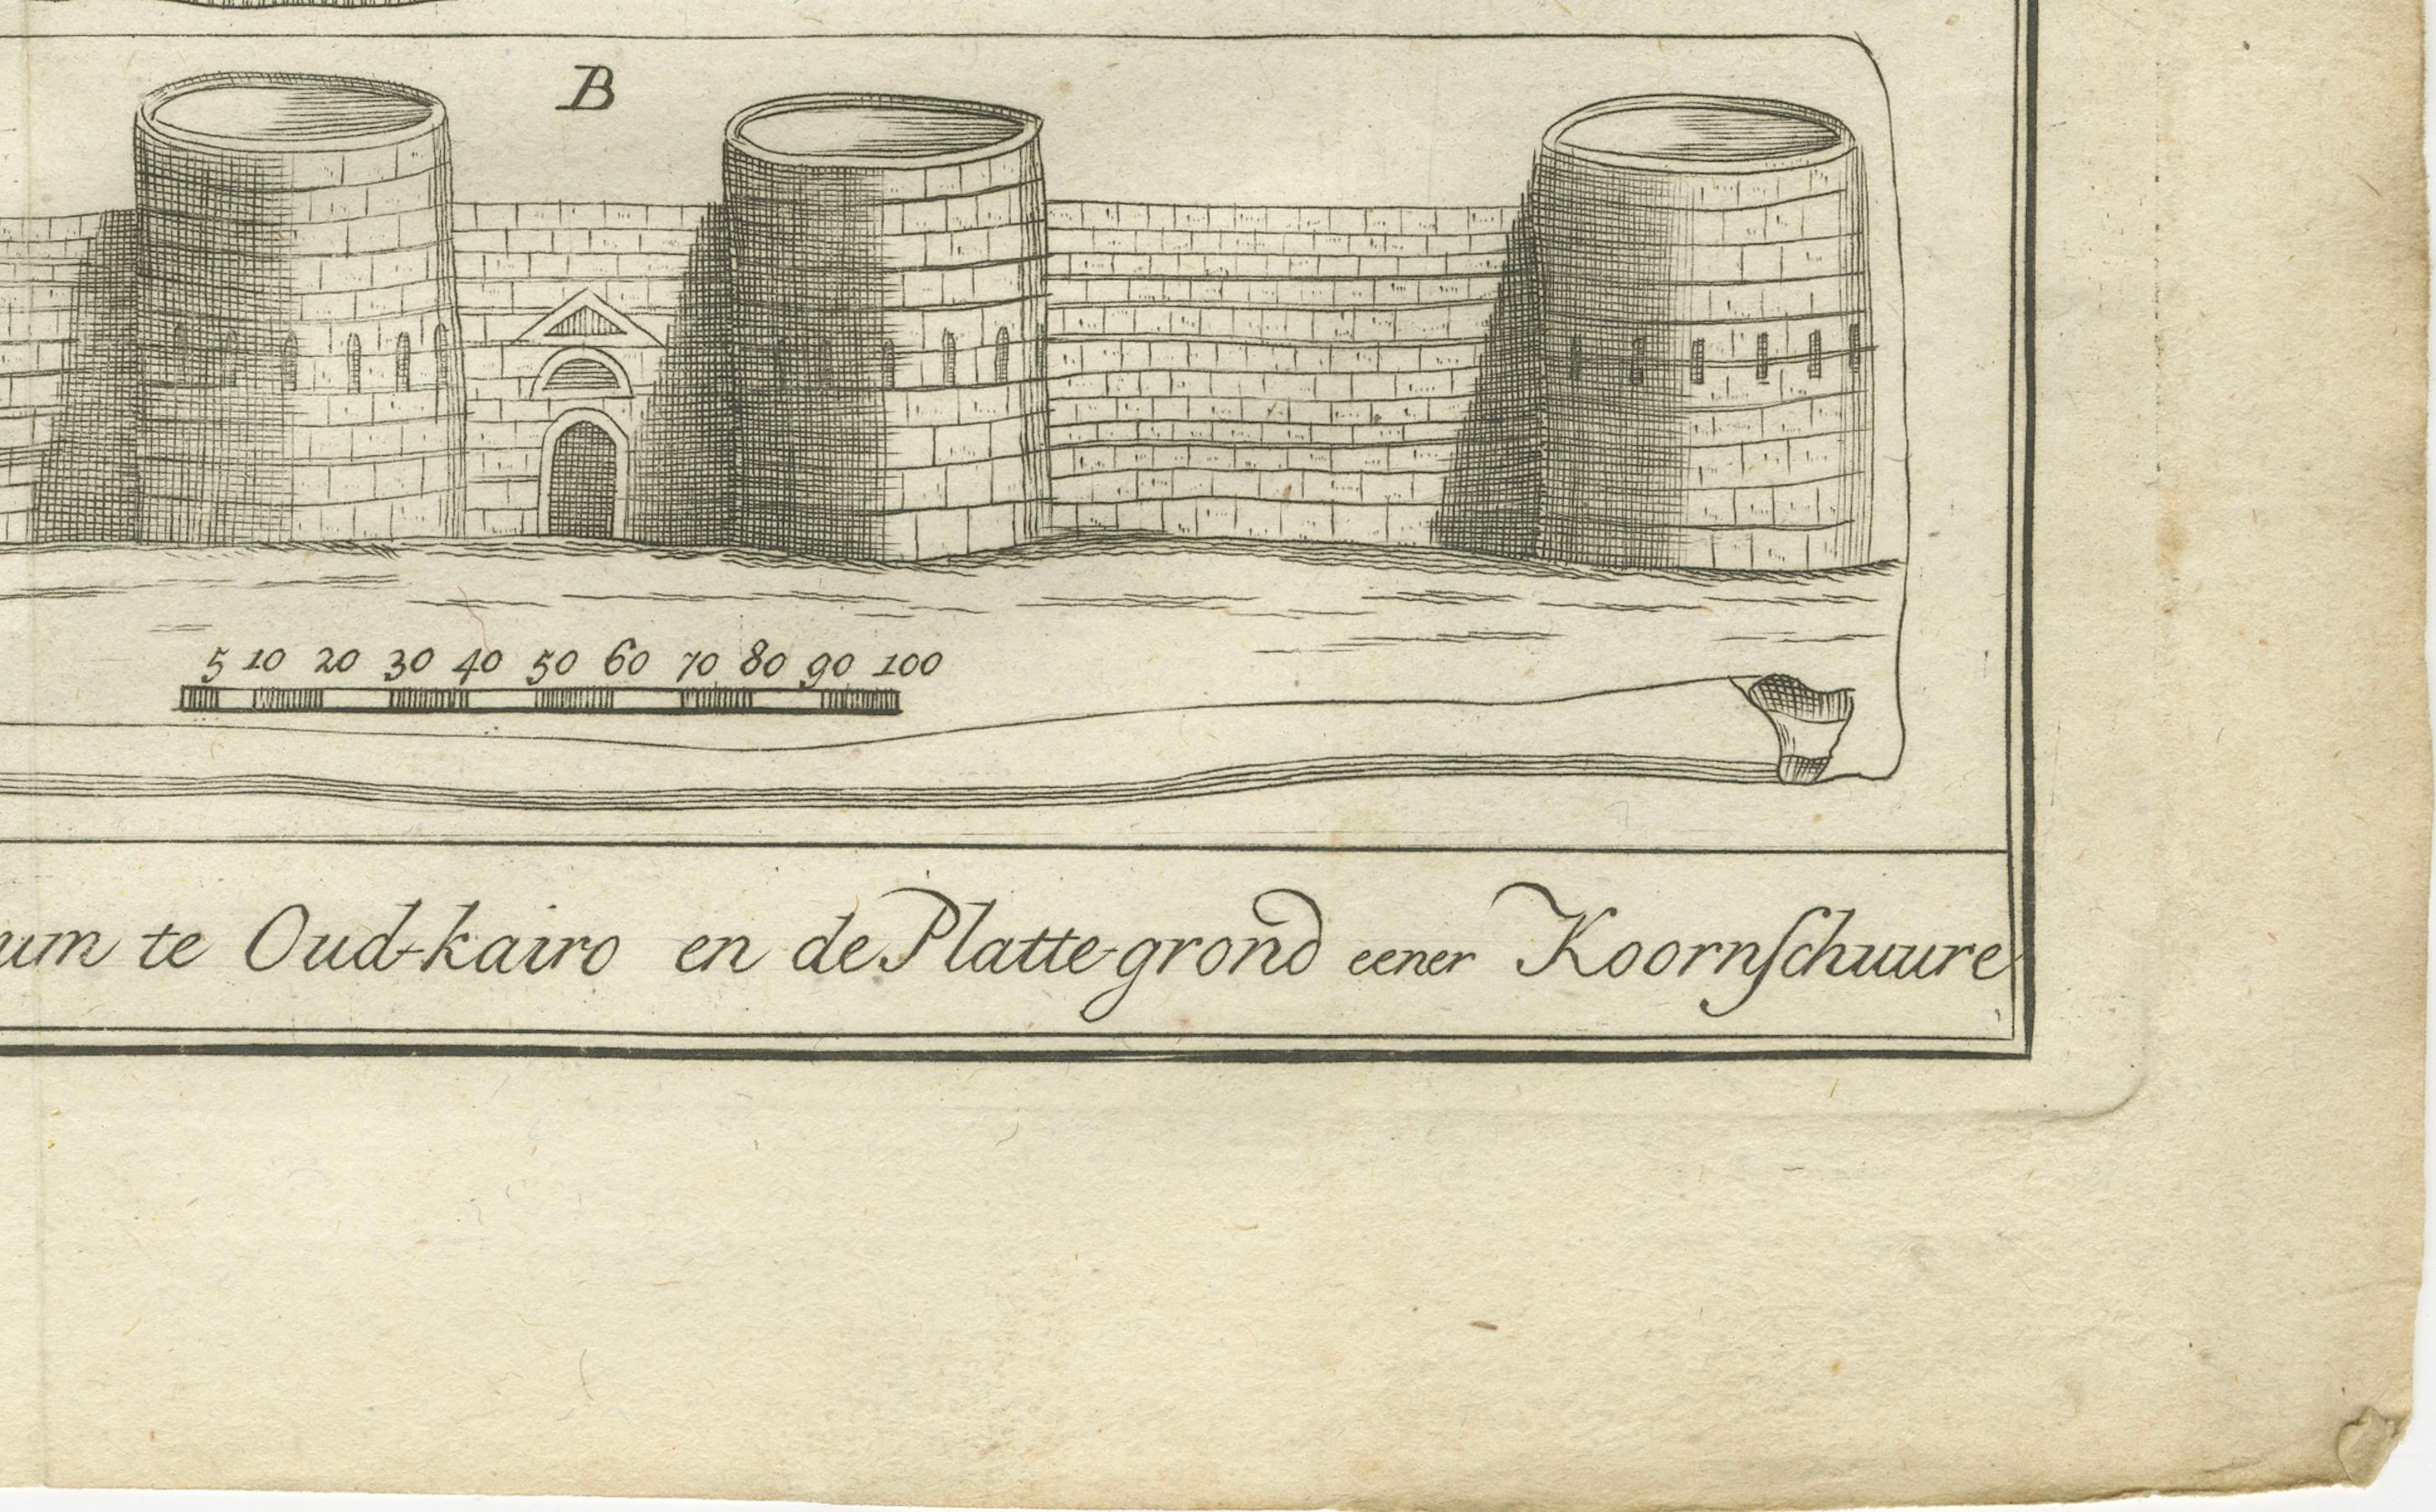 B
5 10 20 30 40 50 60 70 80 90 100
um te Oud-kairo en de Platte-grond eener Koornſchuure